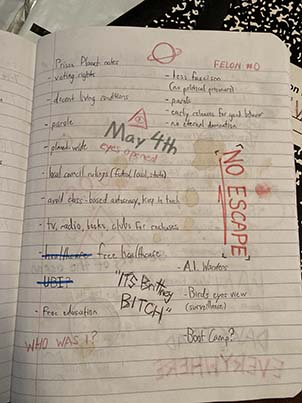 FELON #0
Prison Planet notes
- voting rights
- decent living conditions
- parole
- planet-wide
- local council rulings (federal, local, state)
- avoid class-based autocracy, keep in touch
- tv, radio, books, clubs for recluses
- healthcare free healthcare
- UBI?
- Free education
WHO WAS I?
- less fascism
(no political prisoners)
- parole
- early releases for good behavior
- no eternal damnation
May 4th
eyes opened
NO ESCAPE
"IT'S Britney
BITCH"
- A.I. Wardens
- Birds eyes view
(surveillance)
- Boot Camp?
EVERYWHERE